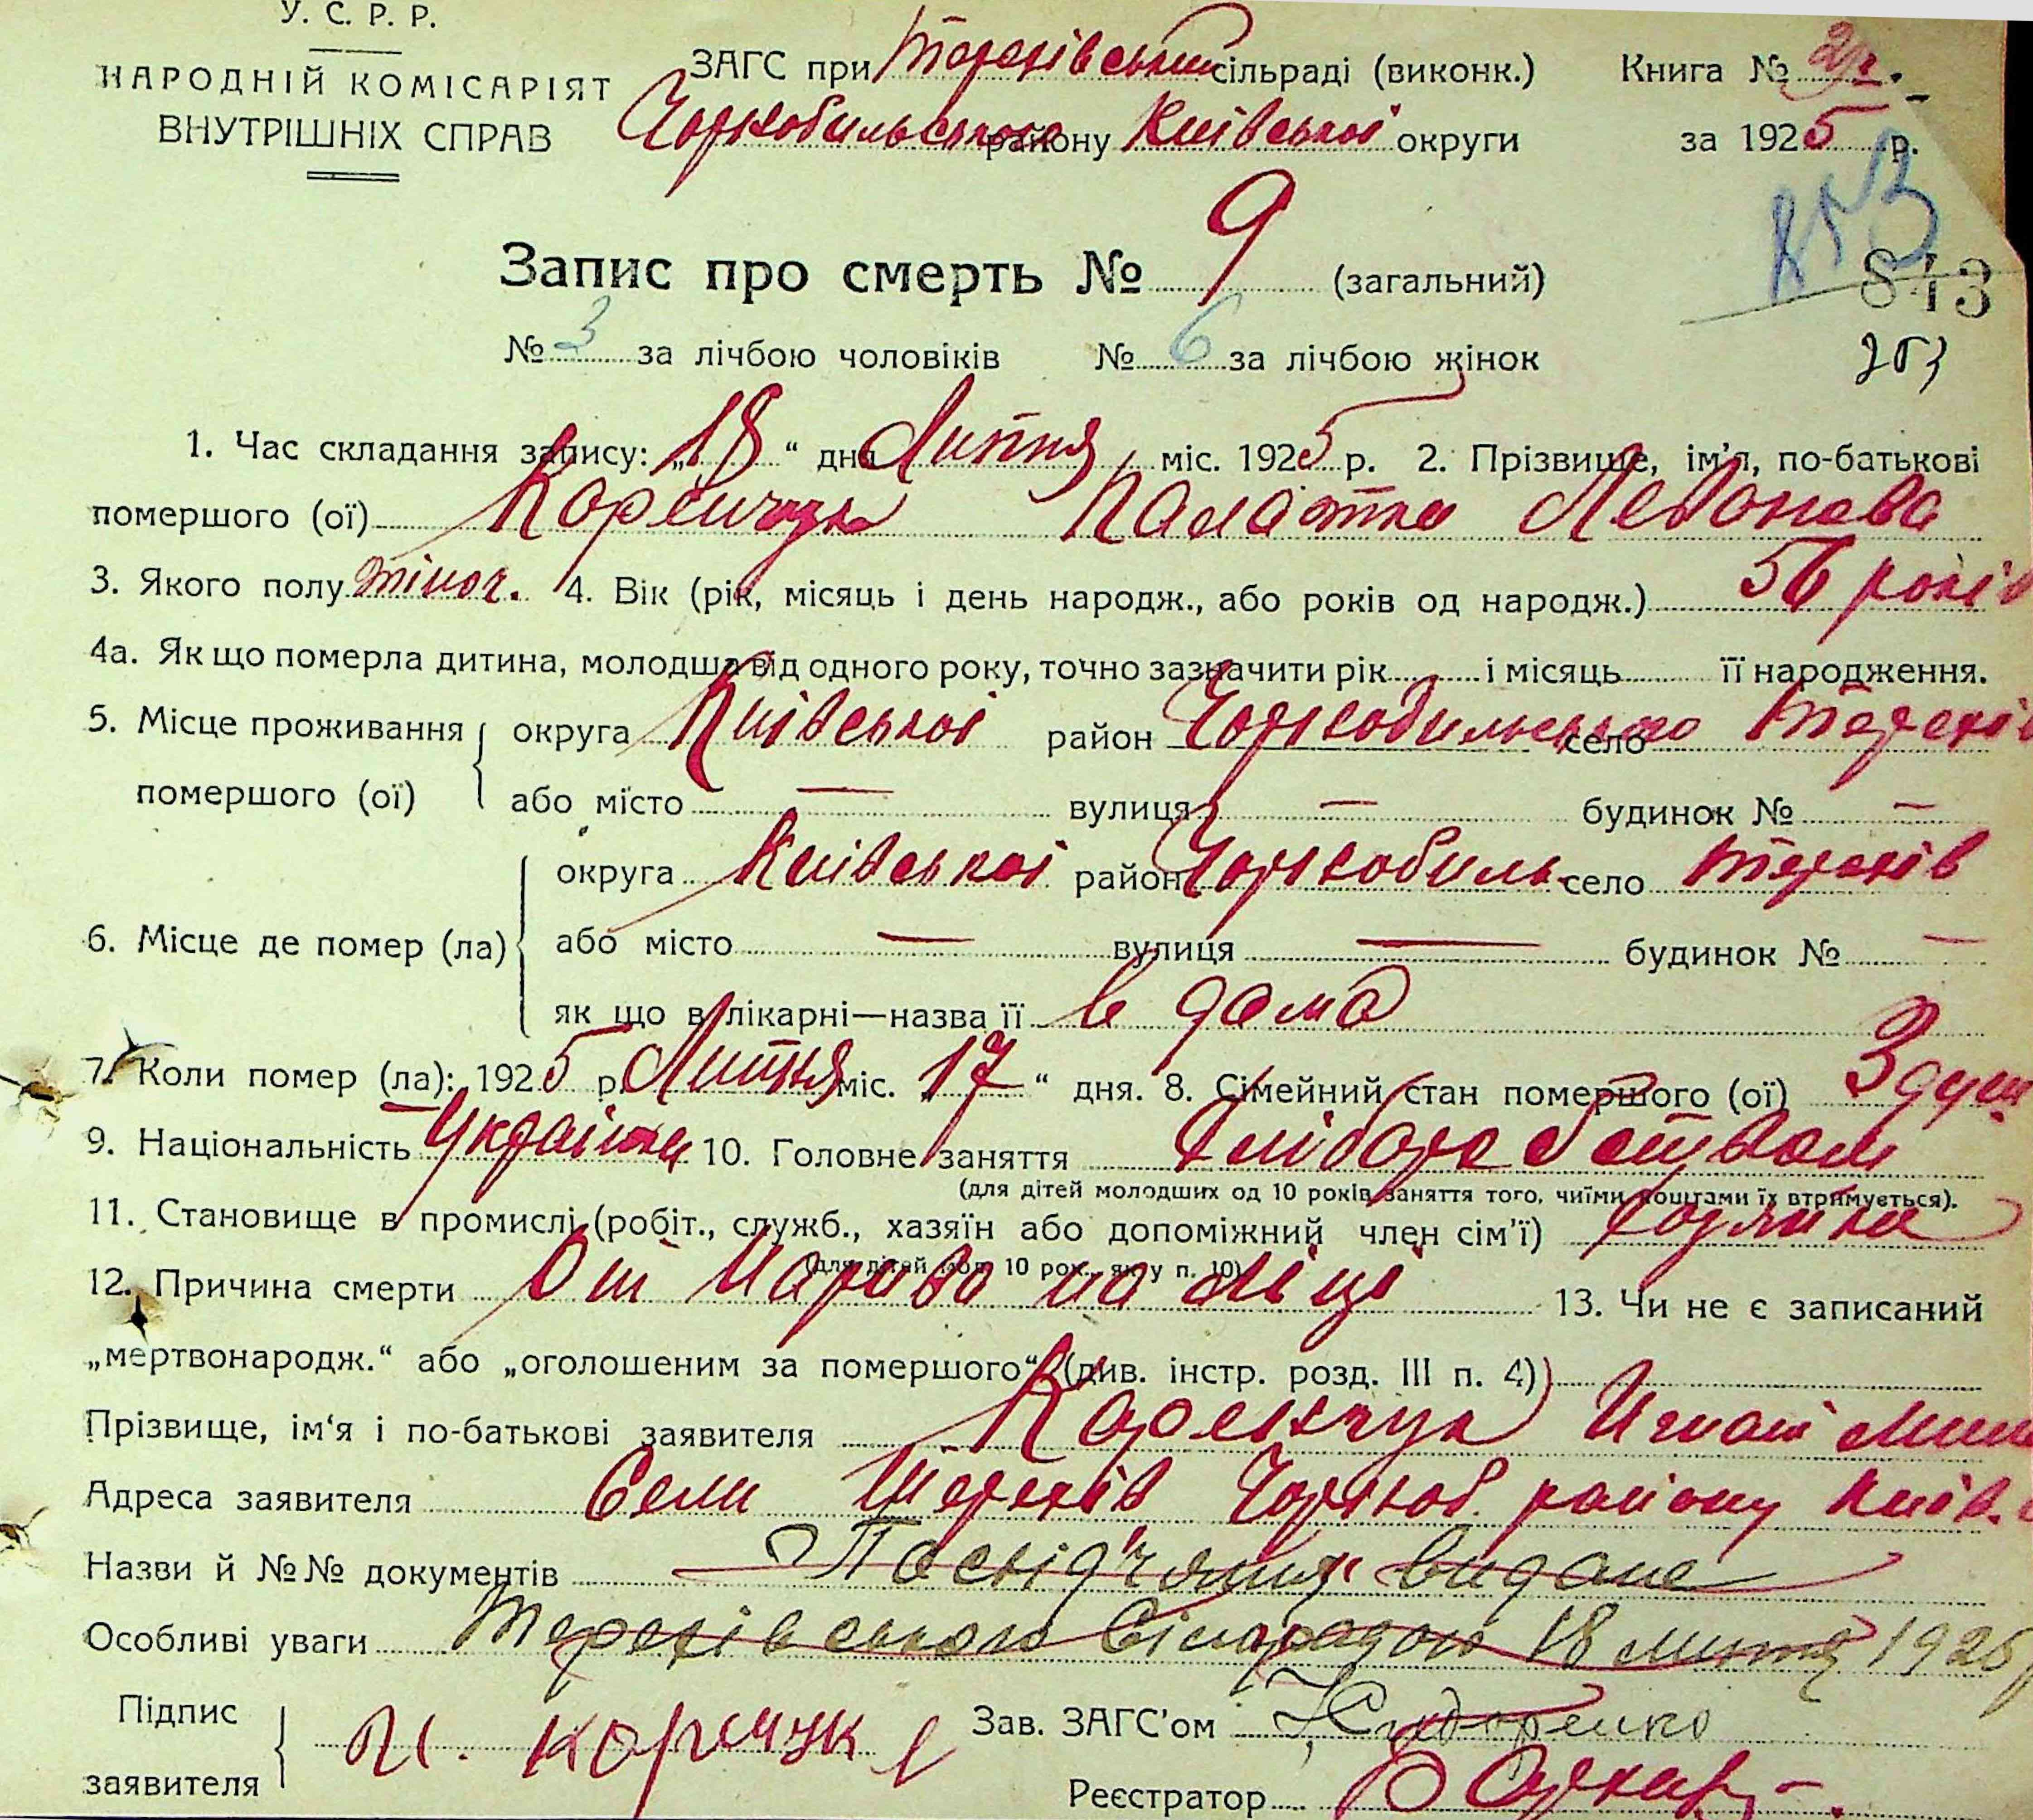 У. С. Р. Р.
НАРОДНІЙ КОМІСАРІЯТ
ВНУТРІШНІХ СПРАВ
ЗАГС при Терехівській сільраді (виконк.)
Чорнобильського району Київської округи
Книга №
за 1925 р.
Запис про смерть № 9 (загальний)
843
353
№ 3 за лічбою чоловіків № 6 за лічбою жінок
1. Час складання запису: „18“ дня Липня міс. 1925 р. 2. Прізвище, ім'я, по-батькові
помершого (ої) Коренчук Палажка Левонова
3. Якого полу жіноч. 4. Вік (рік, місяць і день народж., або років од народж.) 56 років
4а. Як що померла дитина, молодша від одного року, точно зазначити рік і місяць її народження.
5. Місце проживання помершого (ої)
округа Київської район Чорнобильського село Терехів
або місто — вулиця — будинок № —
6. Місце де помер (ла)
округа Київської район Чорнобиль село Терехів
або місто — вулиця — будинок № —
як що в лікарні—назва її в дома
7. Коли помер (ла): 1925 р. Липня міс. „17“ дня. 8. Сімейний стан помершого (ої) 3 душ
9. Національність Україн 10. Головне заняття Хліборобством
(для дітей молодших од 10 років заняття того, чиїми коштами їх втримується).
11. Становище в промислі (робіт., служб., хазяїн або допоміжний член сім'ї)
(для дітей мол. 10 рок., як у п. 10)
12. Причина смерти От на лиці 13. Чи не є записаний
„мертвонародж.“ або „оголошеним за помершого“ (див. інстр. розд. III п. 4))
Прізвище, ім'я і по-батькові заявителя Коренчук Игнат
Адреса заявителя Села Терехів Чорноб. району Київ.
Назви й №№ документів Посвід'чення видане
Особливі уваги Терехівського Сільрадою 18 липня 1925 р
Підпис заявителя И. Коренчук
Зав. ЗАГС'ом
Реєстратор